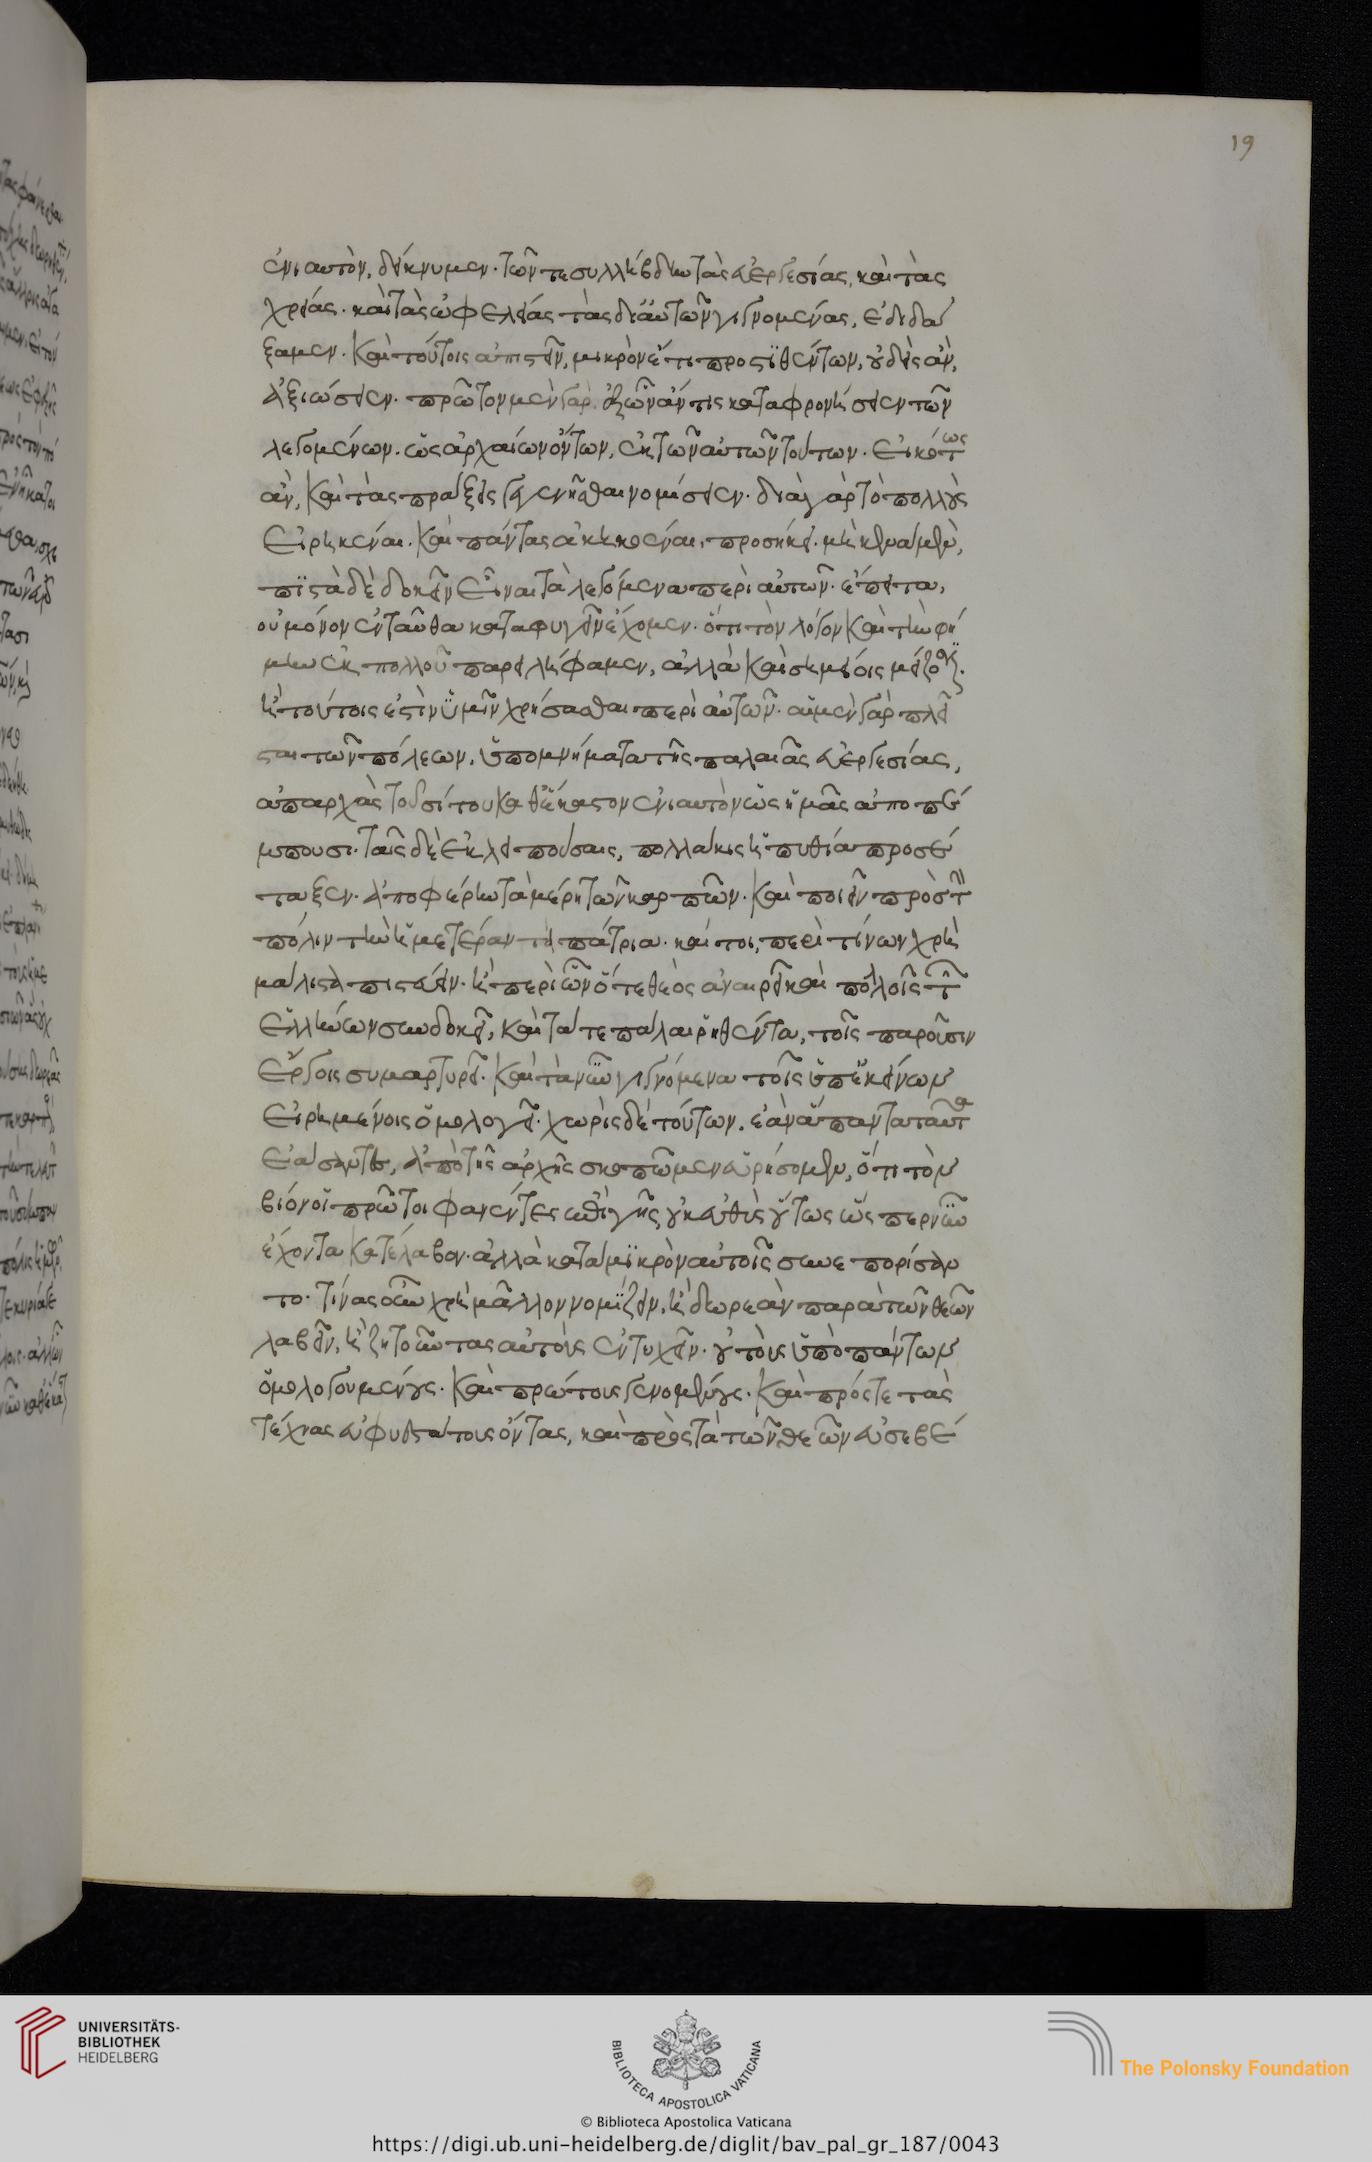 ἐνιαυτὸν, δείκνυμεν. τῶν τε συλλήβδην τὰς εὐεργεσίας, καὶ τὰς
χρείας. καὶ τὰς ὠφελείας τὰς δι' αὐτῶν γιγνομένας, ἐδιδά
ξαμεν. καὶ τούτοις ἀπιστεῖν, μικρὸν ἔτι προστϊθέντων, οὐδεὶς ἂν,
ἀξιώσειεν. πρῶτον μὲν γὰρ. ἐξ ὧν ἄν τις καταφρονήσειεν τῶν
λεγομένων. ὡς ἀρχαίων ὄντων, ἐκ τῶν αὐτῶν τούτων. εἰκότως
ἂν, καὶ τὰς πράξεις γεγενῆσθαι νομίσειεν. διὰ γὰρ τὸ πολλοὺς
εἰρηκέναι. καὶ πάντας ἀκηκοέναι, προσήκει. μὴ καινὰ μὲν,
πϊστὰ δὲ δοκεῖν εἶναι τὰ λεγόμενα περὶ αὐτῶν. ἔπειτα,
οὐ μόνον ἐνταῦθα καταφυγεῖν ἔχομεν. ὅτι τὸν λόγον καὶ τὴν φή
μην ἐκ πολλοῦ παρειλήφαμεν, ἀλλὰ καὶ σημείοις μείζοσιν.
ἢ τούτοις ἐστὶν ὑμῖν χρήσασθαι περὶ αὐτῶν. αἱ μὲν γὰρ πλεῖ
σται τῶν πόλεων, ὑπομνήματα τῆς παλαιᾶς εὐεργεσίας,
ἀπαρχὰς τοῦ σίτου καθ' ἕκαστον ἐνιαυτὸν ὡς ἡμᾶς ἀποπέ
μπουσι. ταῖς δὲ ἐκλειπούσαις, πολλάκις ἡ πυθία προσέ
ταξεν. ἀποφέρειν τὰ μέρη τῶν καρπῶν. καὶ ποιεῖν πρὸς τὴν
πόλιν τὴν ἡμετέραν τὰ πάτρια. καί τοι, περὶ τίνων χρὴ
μάλιστα πιστεύειν. ἢ περὶ ὧν ὅ τε θεὸς ἀναιρεῖ καὶ πολλοῖς τῶν
ἑλλήνων συνδοκεῖ, καὶ τά τε πάλαι ῥηθέντα, τοῖς παροῦσιν
ἔργοις συμμαρτυρεῖ. καὶ τὰ νῦν γιγνόμενα τοῖς ὑπ' ἐκείνων
εἰρημένοις ὁμολογεῖ. χωρὶς δὲ τούτων. ἐὰν ἅπαντα ταῦτα
ἐάσαντες, ἀπὸ τῆς ἀρχῆς σκοπῶμεν εὑρήσομεν, ὅτι τὸν
βίον οἱ πρῶτοι φανέντες ἐπὶ γῆς οὐκ εὐθὺς οὕτως ὥσπερ νῦν
ἔχοντα κατέλαβον. ἀλλὰ κατὰ μϊκρὸν αὐτοῖς συνεπορίσαν
το. τίνας οὖν χρὴ μᾶλλον νομΐζειν, ἢ δωρεὰν παρὰ τῶν θεῶν
λαβεῖν, ἢ ζητοῦντας αὐτοὺς ἐντυχεῖν. οὐ τοὺς ὑπὸ πάντων
ὁμολογουμένους. καὶ πρώτους γενομένους. καὶ πρός τε τὰς
τέχνας εὐφυεστάτους ὄντας, καὶ πρὸς τὰ τῶν θεῶν εὐσεβέ
19
UNIVERSITÄTS-
BIBLIOTHEK
HEIDELBERG
BIBLIOTECA APOSTOLICA VATICANA
The Polonsky Foundation
© Biblioteca Apostolica Vaticana
https://digi.ub.uni-heidelberg.de/diglit/bav_pal_gr_187/0043